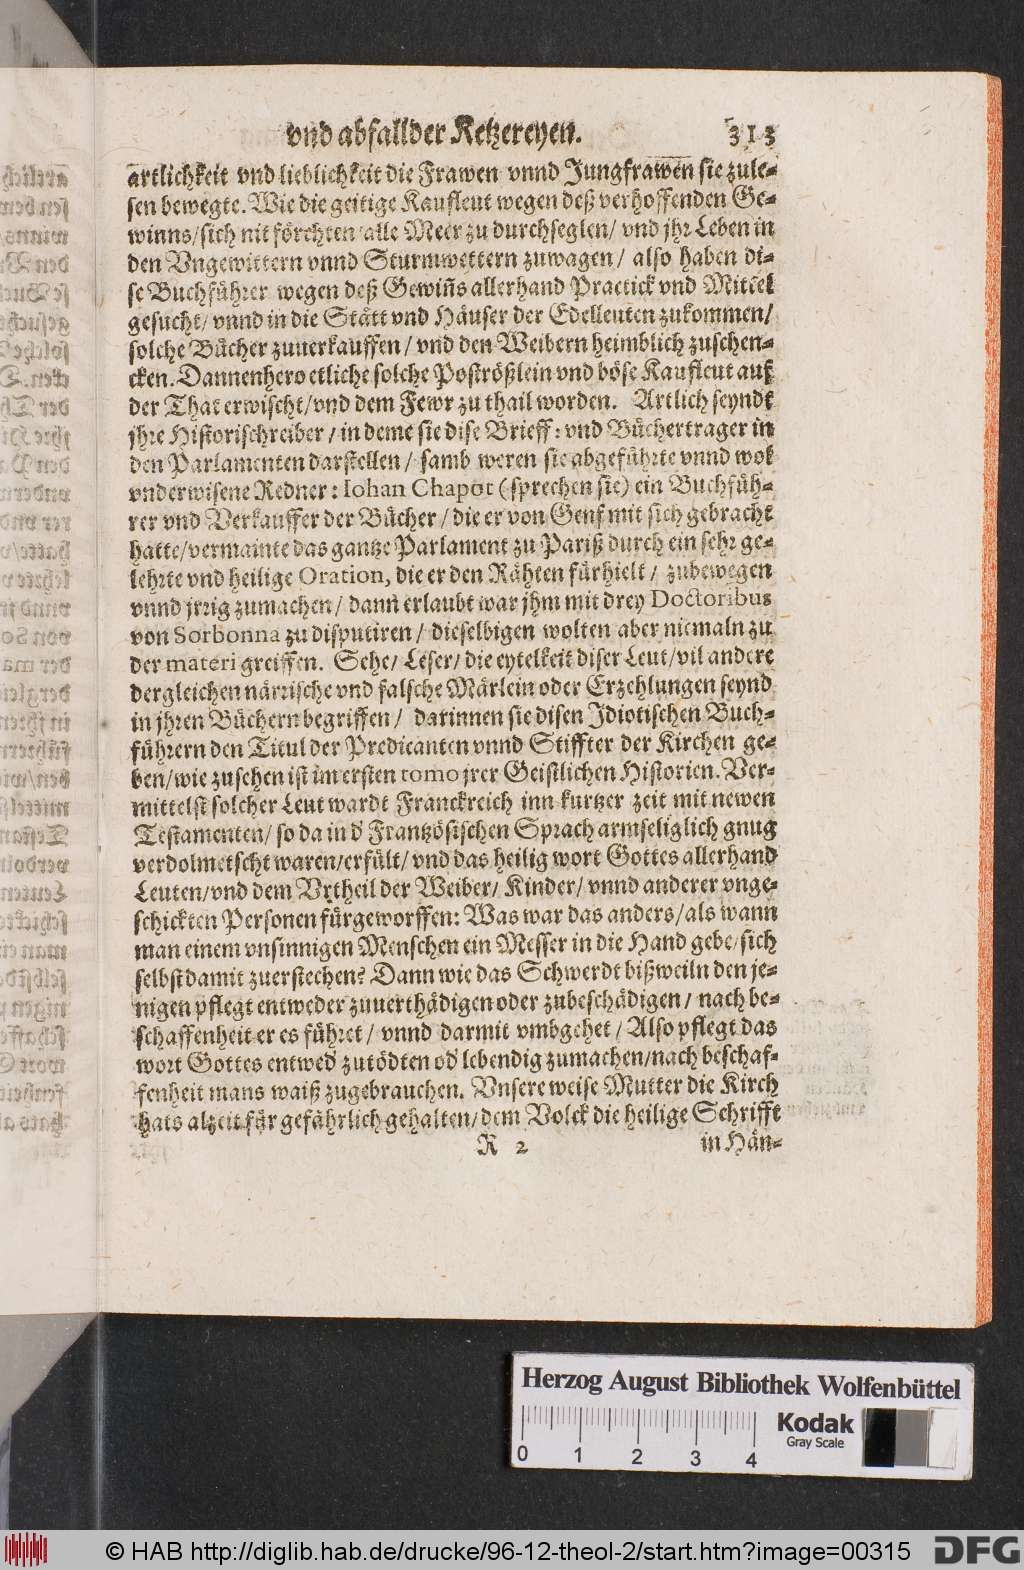 vnd abfall der Ketzereyen. 313
artlichkeit vnd lieblichkeit die Frawen vnnd Jungfrawen sie zule-
sen bewegte. Wie die geitige Kaufleut wegen deß verhoffenden Ge-
winns/sich nit förchten alle Meer zu durchseglen/ vnd jhr Leben in
den Vngewittern vnnd Sturmwettern zuwagen/ also haben di-
se Buchführer wegen deß Gewiñs allerhand Practick vnd Mittel
gesucht/ vnnd in die Stätt vnd Häuser der Edelleuten zukommen/
solche Bücher zuuerkauffen/ vnd den Weibern heimblich zuschen-
cken. Dannenhero etliche solche Poströßlein vnd böse Kaufleut auf
der That erwischt/vnd dem Fewr zu thail worden. Artlich seyndt
jhre Historischreiber/ in deme sie dise Brieff: vnd Büchertrager in
den Parlamenten darstellen/ samb weren sie abgeführte vnnd wol
vnderwisene Redner: Iohan Chapot (sprechen sie) ein Buchfüh-
rer vnd Verkauffer der Bücher/ die er von Genf mit sich gebracht
hatte/vermainte das gantze Parlament zu Pariß durch ein sehr ge-
lehrte vnd heilige Oration, die er den Rähten fürhielt/ zubewegen
vnnd jrrig zumachen/ dann erlaubt war jhm mit drey Doctoribus
von Sorbonna zu disputiren/ dieselbigen wolten aber niemaln zu
der materi greiffen. Sehe/ Leser/ die eytelkeit diser Leut/vil andere
dergleichen närrische vnd falsche Märlein oder Erzehlungen seynd
in jhren Büchern begriffen/ darinnen sie disen Idiotischen Buch-
führern den Titul der Predicanten vnnd Stiffter der Kirchen ge-
ben/wie zusehen ist im ersten tomo jrer Geistlichen Historien. Ver-
mittelst solcher Leut wardt Franckreich inn kurtzer zeit mit newen
Testamenten/ so da in d' Frantzösischen Sprach armseliglich gnug
verdolmetscht waren/erfült/ vnd das heilig wort Gottes allerhand
Leuten/vnd dem Vrtheil der Weiber/ Kinder/ vnnd anderer vnge-
schickten Personen fürgeworffen: Was war das anders/als wann
man einem vnsinnigen Menschen ein Messer in die Hand gebe/sich
selbst damit zuerstechen? Dann wie das Schwerdt bißweiln den je-
nigen pflegt entweder zuuerthädigen oder zubeschädigen/ nach be-
schaffenheit er es führet/ vnnd darmit vmbgehet/ Also pflegt das
wort Gottes entwed' zutödten od' lebendig zumachen/nach beschaf-
fenheit mans waiß zugebrauchen. Vnsere weise Mutter die Kirch
hats alzeit für gefährlich gehalten/dem Volck die heilige Schrifft
R 2 in Hän-
Herzog August Bibliothek Wolfenbüttel
0 1 2 3 4
Kodak
Gray Scale
© HAB http://diglib.hab.de/drucke/96-12-theol-2/start.htm?image=00315
DFG